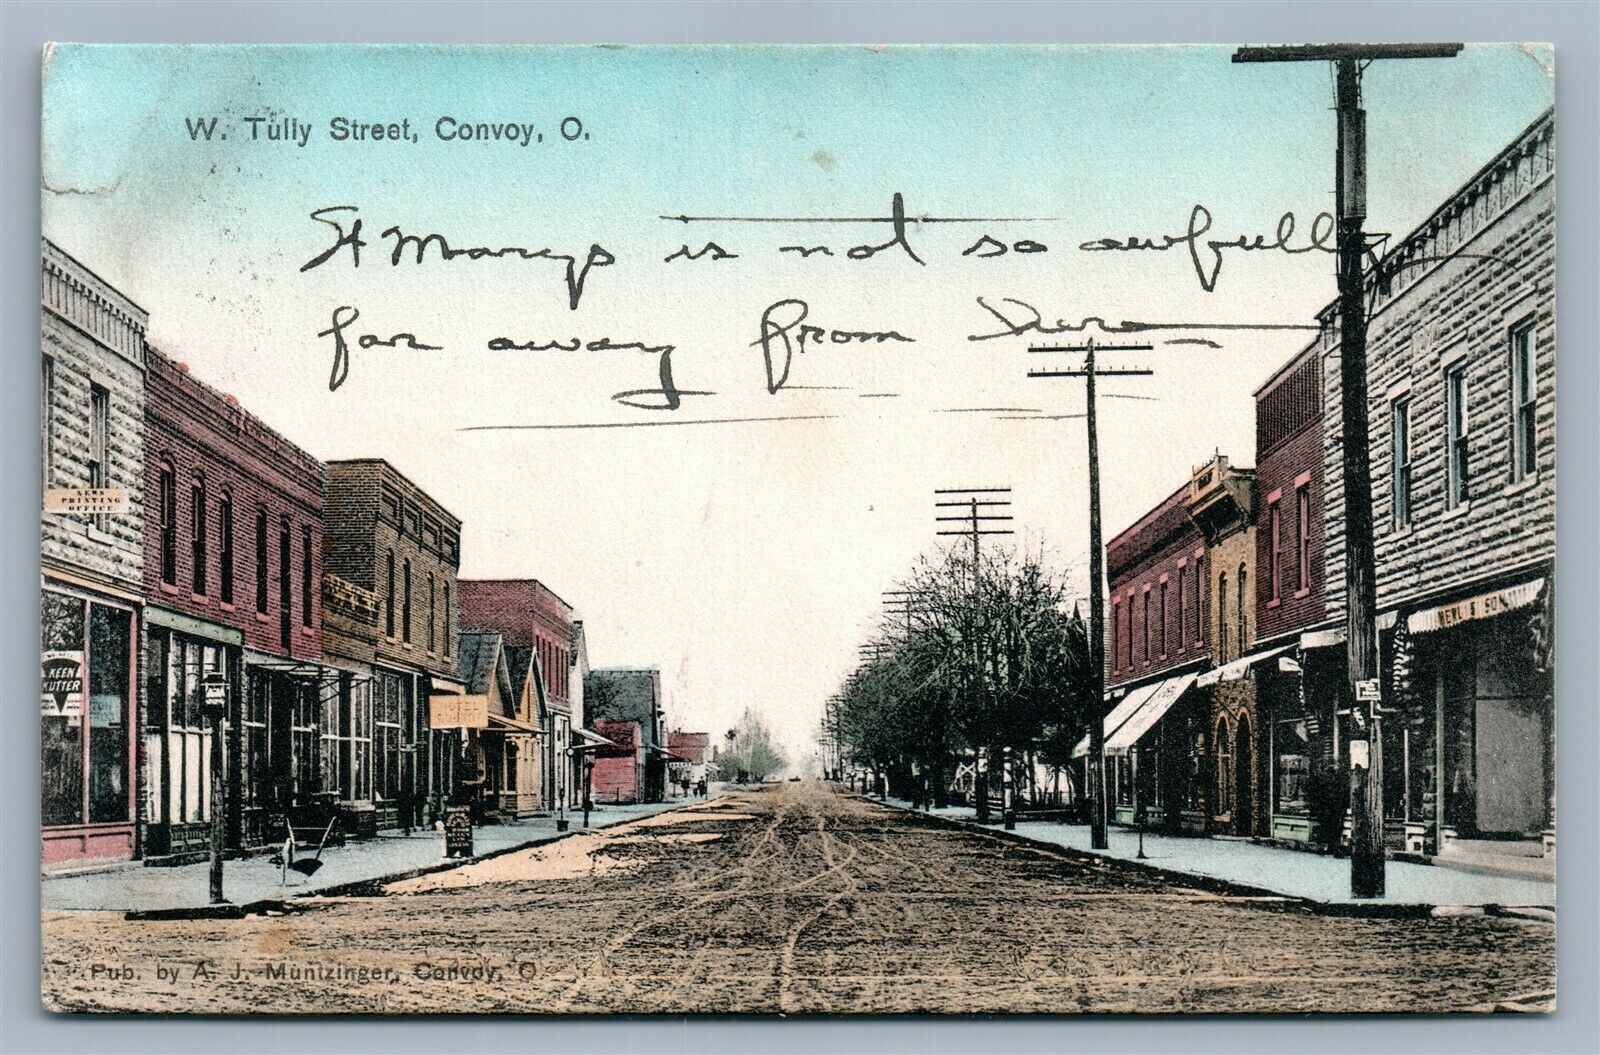 W. Tully Street, Convoy, O.
St Marys is not so awfull
far away from here
NEWS
PRINTING
OFFICE
KEEN
KUTTER
HOTEL
& SON
Pub. by A. J. Muntzinger, Convoy, O.